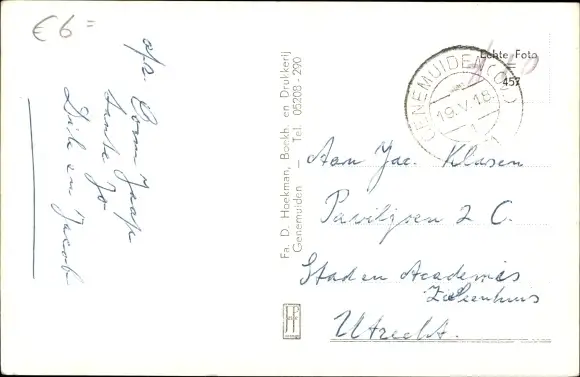 € 6=
afz. Oom Jaap
tante Jo
Dirk en Jacob
Fa. D. Hoekman, Boekh. en Drukkerij
Genemuiden — Tel. 05208 - 290
Echte Foto
457
GENEMUIDEN (OV.)
19.V.18
1
Aan Jac. Klasen
Paviljoen 2 C.
Staden Academies
Ziekenhuis
Utrecht.